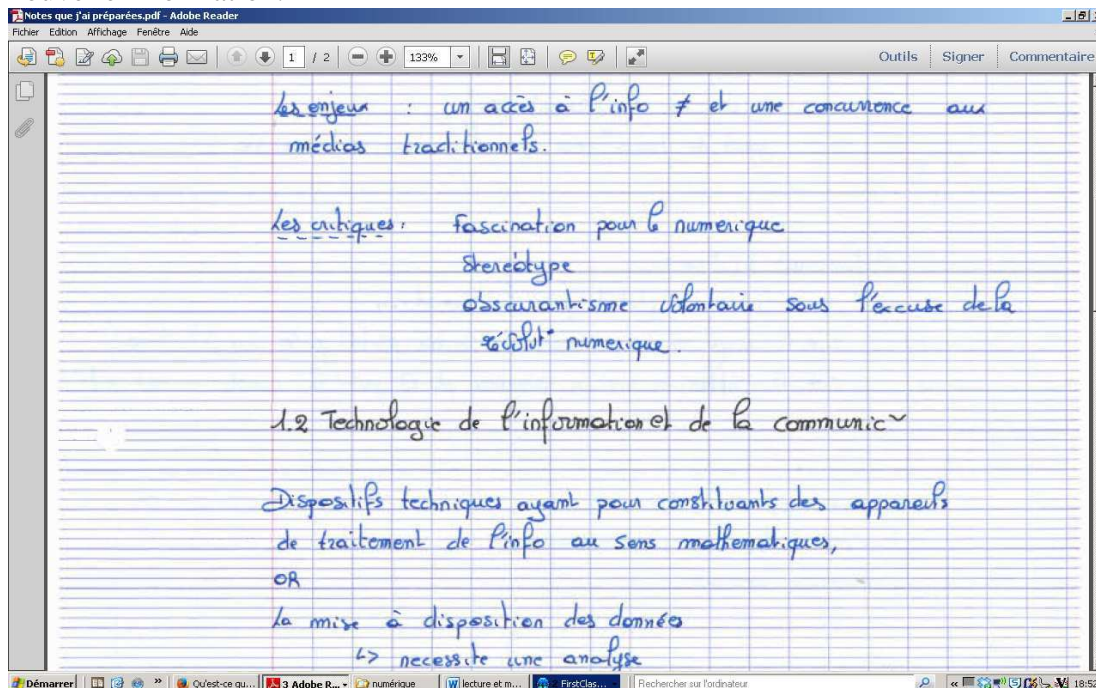 Notes que j'ai préparées.pdf - Adobe Reader
Fichier Edition Affichage Fenêtre Aide
1 / 2 133% Outils Signer Commentaire
Les enjeux : un accès à l'info ≠ et une concurrence aux
médias traditionnels.
Les critiques : Fascination pour le numerique
Stereotype
obscurantisme volontaire sous l'excuse de la
révolut° numerique.
1.2 Technologie de l'information et de la communic~
Dispositifs techniques ayant pour constituants des appareils
de traitement de l'info au sens mathematiques,
OR
la mise à disposition des données
↳ necessite une analyse
Démarrer » Qu'est-ce qu... 3 Adobe R... numérique lecture et m... FirstClas... Rechercher sur l'ordinateur « 18:52